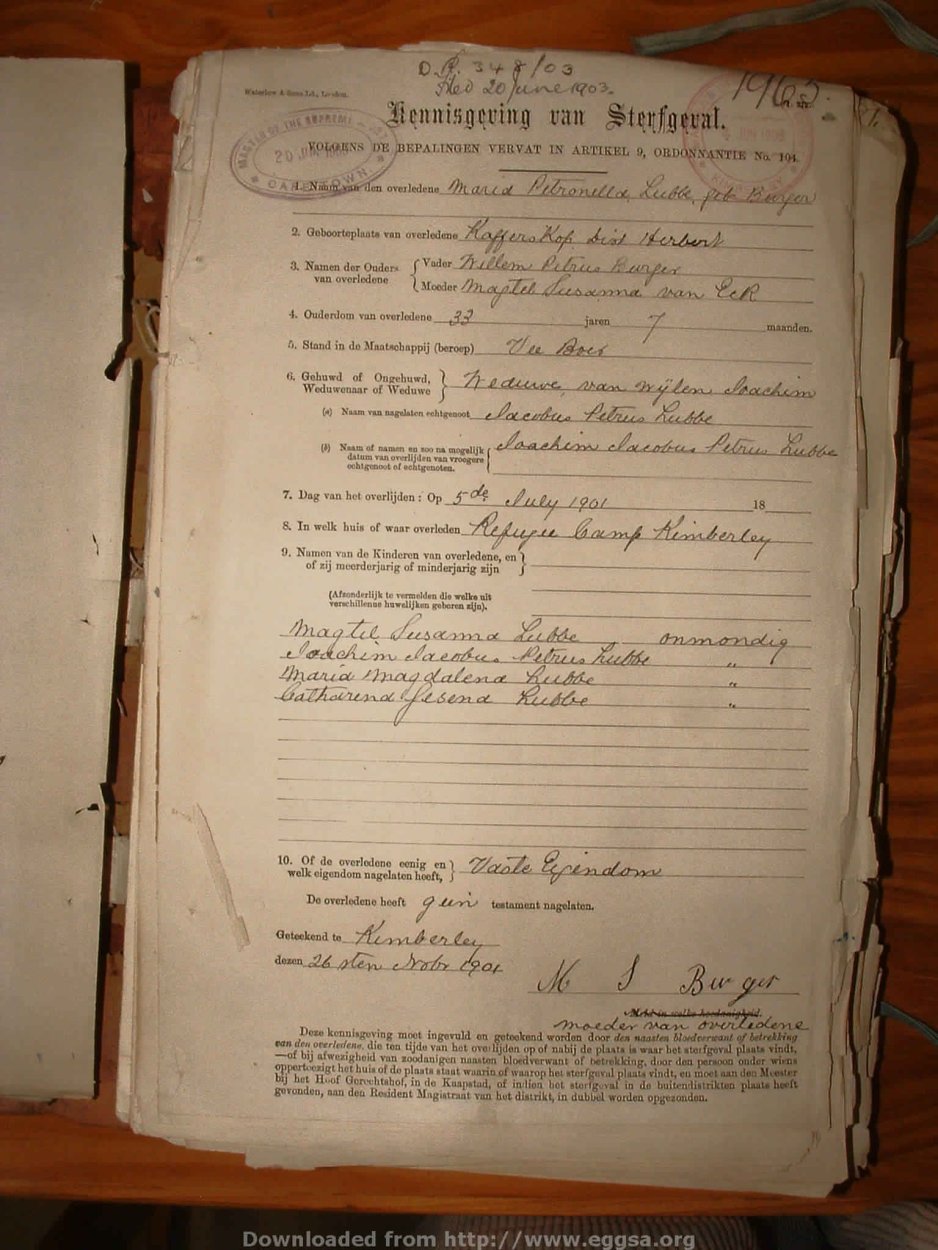 D.R. 348/03
Filed 20 June 1903.
1965
Waterlow & Sons Ld., London.
Kennisgeving van Sterfgeval.
MASTER OF THE SUPREME
20 JUN 1903
CAPETOWN
VOLGENS DE BEPALINGEN VERVAT IN ARTIKEL 9, ORDONNANTIE No. 104.
1. Naam van den overledene Maria Petronella Lubbe, geb Burger
2. Geboorteplaats van overledene Kaffers Kop Dist Herbert
3. Namen der Ouders van overledene { Vader Willem Petrus Burger
Moeder Magtel Susanna van Eck
4. Ouderdom van overledene 33 jaren 7 maanden.
5. Stand in de Maatschappij (beroep) Vee Boer
6. Gehuwd of Ongehuwd, Weduwenaar of Weduwe } Weduwe van wijlen Joachim
(a) Naam van nagelaten echtgenoot Jacobus Petrus Lubbe
(b) Naam of namen en zoo na mogelijk datum van overlijden van vroegere echtgenoot of echtgenoten. { Joachim Jacobus Petrus Lubbe
7. Dag van het overlijden : Op 5de July 1901 18
8. In welk huis of waar overleden Refugee Camp Kimberley
9. Namen van de Kinderen van overledene, en
of zij meerderjarig of minderjarig zijn }
(Afzonderlijk te vermelden die welke uit
verschillende huwelijken geboren zijn).
Magtel Susanna Lubbe onmondig
Joachim Jacobus Petrus Lubbe "
Maria Magdalena Lubbe "
Catharina Gesena Lubbe "
10. Of de overledene eenig en welk eigendom nagelaten heeft, } Vaste Eigendom
De overledene heeft geen testament nagelaten.
Geteekend te Kimberley
dezen 26sten Novbr 1901
M S Burger
Meld in welke hoedanigheid.
moeder van overledene
Deze kennisgeving moet ingevuld en geteekend worden door den naasten bloedverwant of betrekking
van den overledene, die ten tijde van het overlijden op of nabij de plaats is waar het sterfgeval plaats vindt,
—of bij afwezigheid van zoodanigen naasten bloedverwant of betrekking, door den persoon onder wiens
oppertoezigt het huis of de plaats staat waarin of waarop het sterfgeval plaats vindt, en moet aan den Meester
bij het Hoof Gerechtshof, in de Kaapstad, of indien het sterfgeval in de buitendistrikten plaats heeft
gevonden, aan den Resident Magistraat van het distrikt, in dubbel worden opgezonden.
Downloaded from http://www.eggsa.org